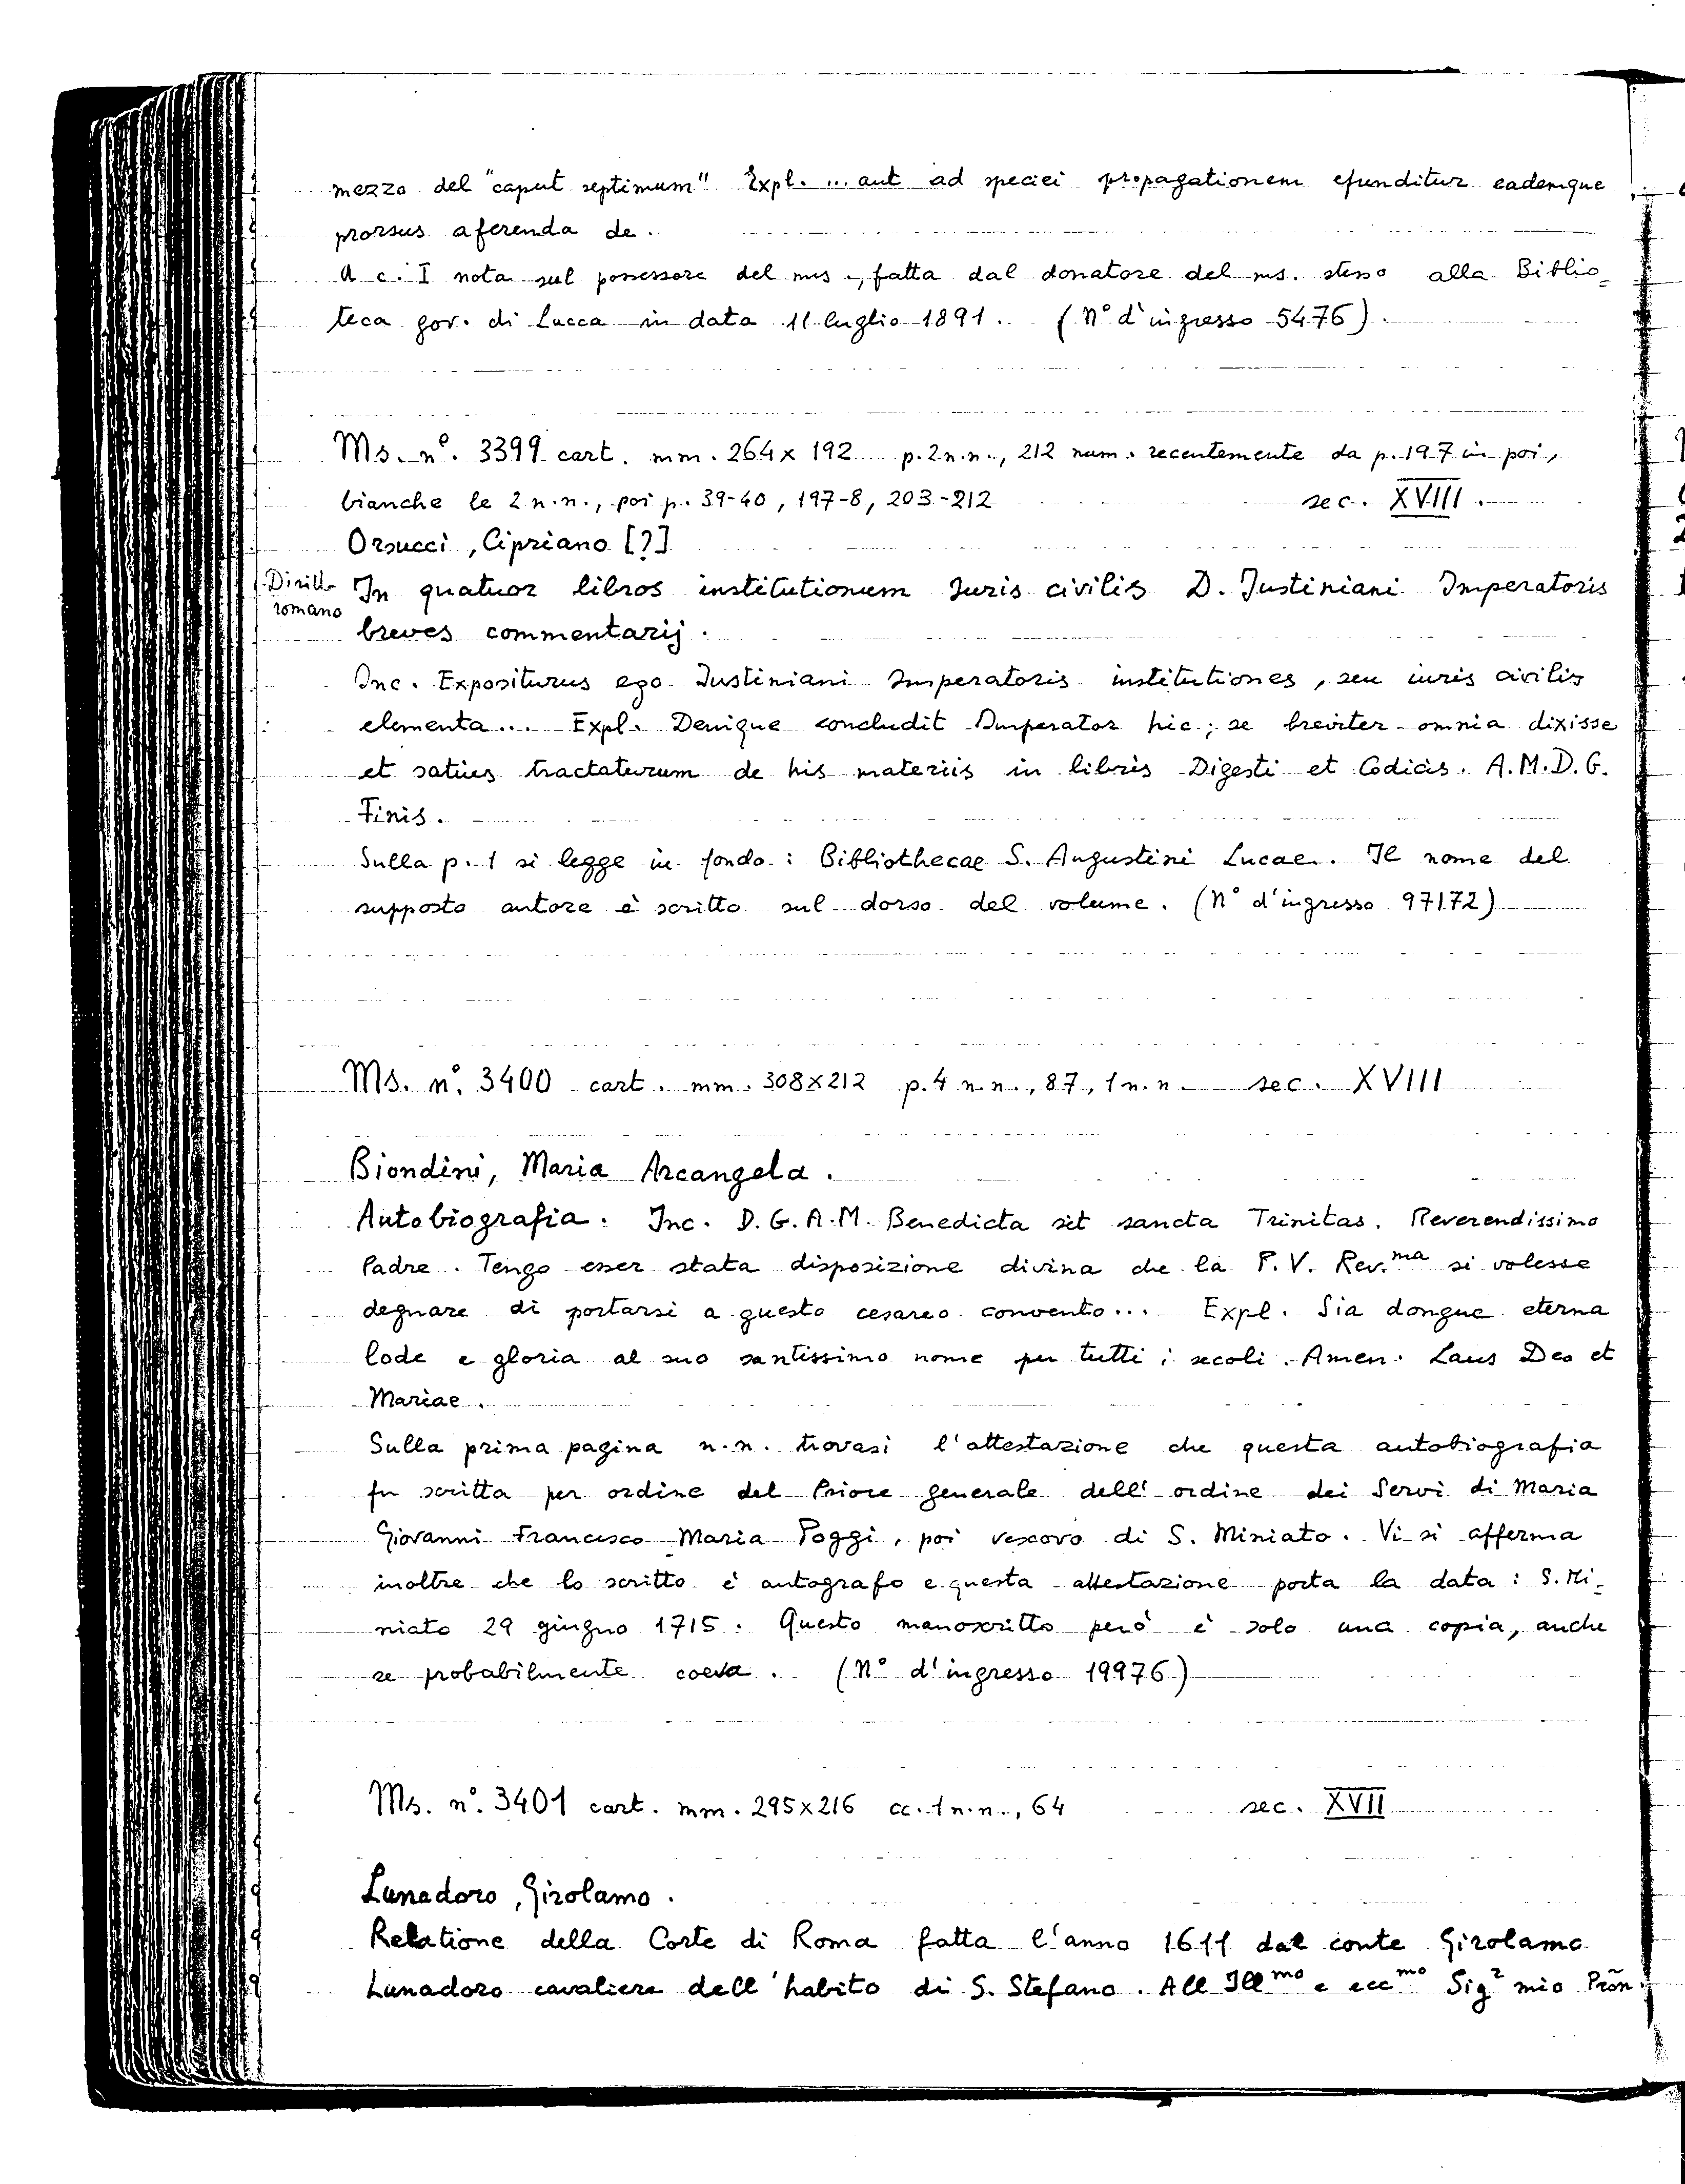 mezzo del "caput septimum" Expl. ... aut ad speciei propagationem efunditur eademque
prorsus aferenda de.
A c. I nota sul possessore del ms., fatta dal donatore del ms. stesso alla Biblio=
teca gov. di Lucca in data 11 luglio 1891. (N° d'ingresso 5476).
Ms. n°. 3399 cart. mm. 264x192 p. 2 n.n., 212 num. recentemente da p. 197 in poi,
bianche le 2 n.n., poi p. 39-40, 197-8, 203-212 sec. XVIII.
Orsucci, Cipriano [?]
Diritto
romano
In quatuor libros institutionum Juris civilis D. Justiniani Imperatoris
breves commentarij.
Inc. Expositurus ego Justiniani Imperatoris institutiones, seu iuris civilis
elementa... Expl. Denique concludit Imperator hic; se breviter omnia dixisse
et satius tractaturum de his materiis in libris Digesti et Codicis. A.M.D.G.
Finis.
Sulla p. 1 si legge in fondo: Bibliothecae S. Augustini Lucae. Il nome del
supposto autore è scritto sul dorso del volume. (N° d'ingresso 97172)
Ms. n°. 3400 cart. mm. 308x212 p. 4 n.n., 87, 1 n.n. sec. XVIII
Biondini, Maria Arcangela.
Autobiografia. Inc. D.G.A.M. Benedicta sit sancta Trinitas. Reverendissimo
Padre. Tengo esser stata disposizione divina che la P.V. Rev.ma si volesse
degnare di portarsi a questo cesareo convento... Expl. Sia dongue eterna
lode e gloria al suo santissimo nome per tutti i secoli. Amen. Laus Deo et
Mariae.
Sulla prima pagina n.n. trovasi l'attestazione che questa autobiografia
fu scritta per ordine del Priore generale dell'ordine dei Servi di Maria
Giovanni Francesco Maria Poggi, poi vescovo di S. Miniato. Vi si afferma
inoltre che lo scritto è autografo e questa attestazione porta la data: S. Mi=
niato 29 giugno 1715. Questo manoscritto però è solo una copia, anche
se probabilmente coeva. (N° d'ingresso 19976)
Ms. n°. 3401 cart. mm. 295x216 cc. 1 n.n., 64 sec. XVII
Lunadoro, Girolamo.
Relatione della Corte di Roma fatta l'anno 1611 dal conte Girolamo
Lunadoro cavaliere dell'habito di S. Stefano. All Ill mo e ecc mo Sig r mio Prõn.